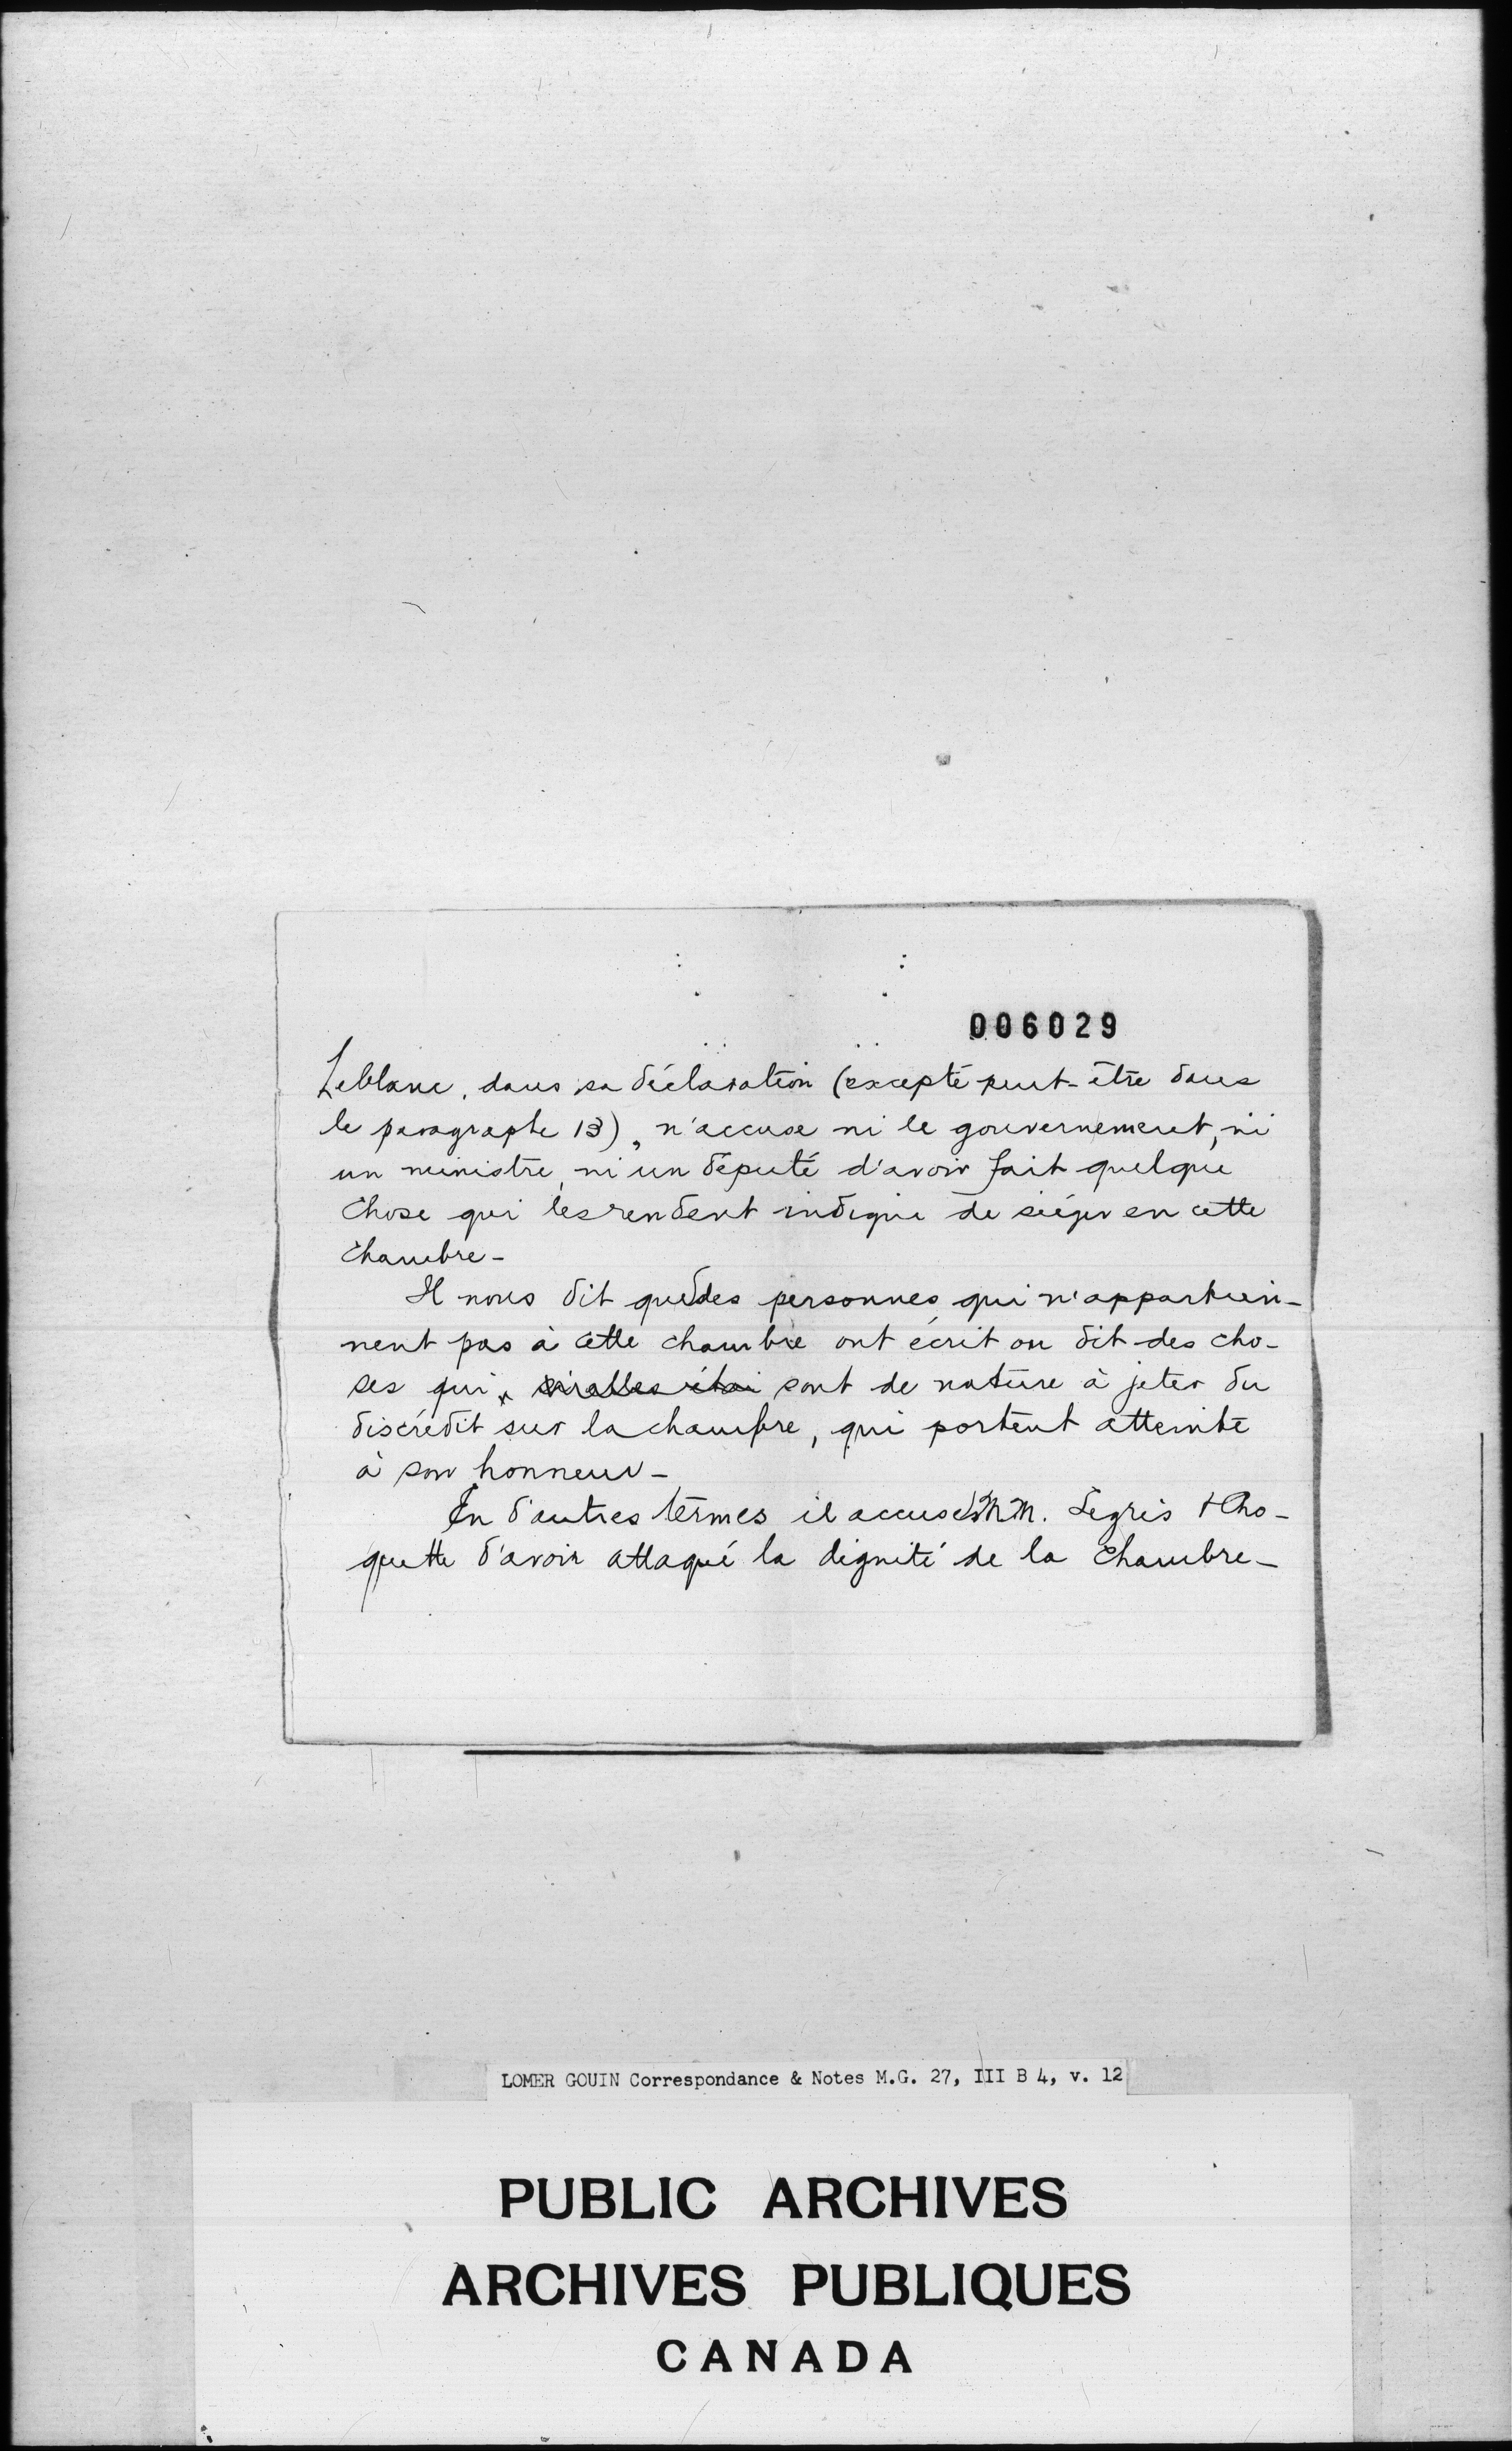 006029
Leblanc, dans sa déclaration (excepté peut-être dans
le paragraphe 13), n'accuse ni le gouvernement, ni
un ministre, ni un député d'avoir fait quelque
chose qui les rendent indigne de siéger en cette
chambre -
Il nous dit que des personnes qui n'appartien-
nent pas à cette chambre ont écrit ou dit des cho-
ses qui sont de nature à jeter du
discrédit sur la chambre, qui portent atteinte
à son honneur -
En d'autres termes il accuse MM. Legris & Cho-
quette d'avoir attaqué la dignité de la Chambre -
LOMER GOUIN Correspondance & Notes M.G. 27, III B 4, v. 12
PUBLIC ARCHIVES
ARCHIVES PUBLIQUES
CANADA